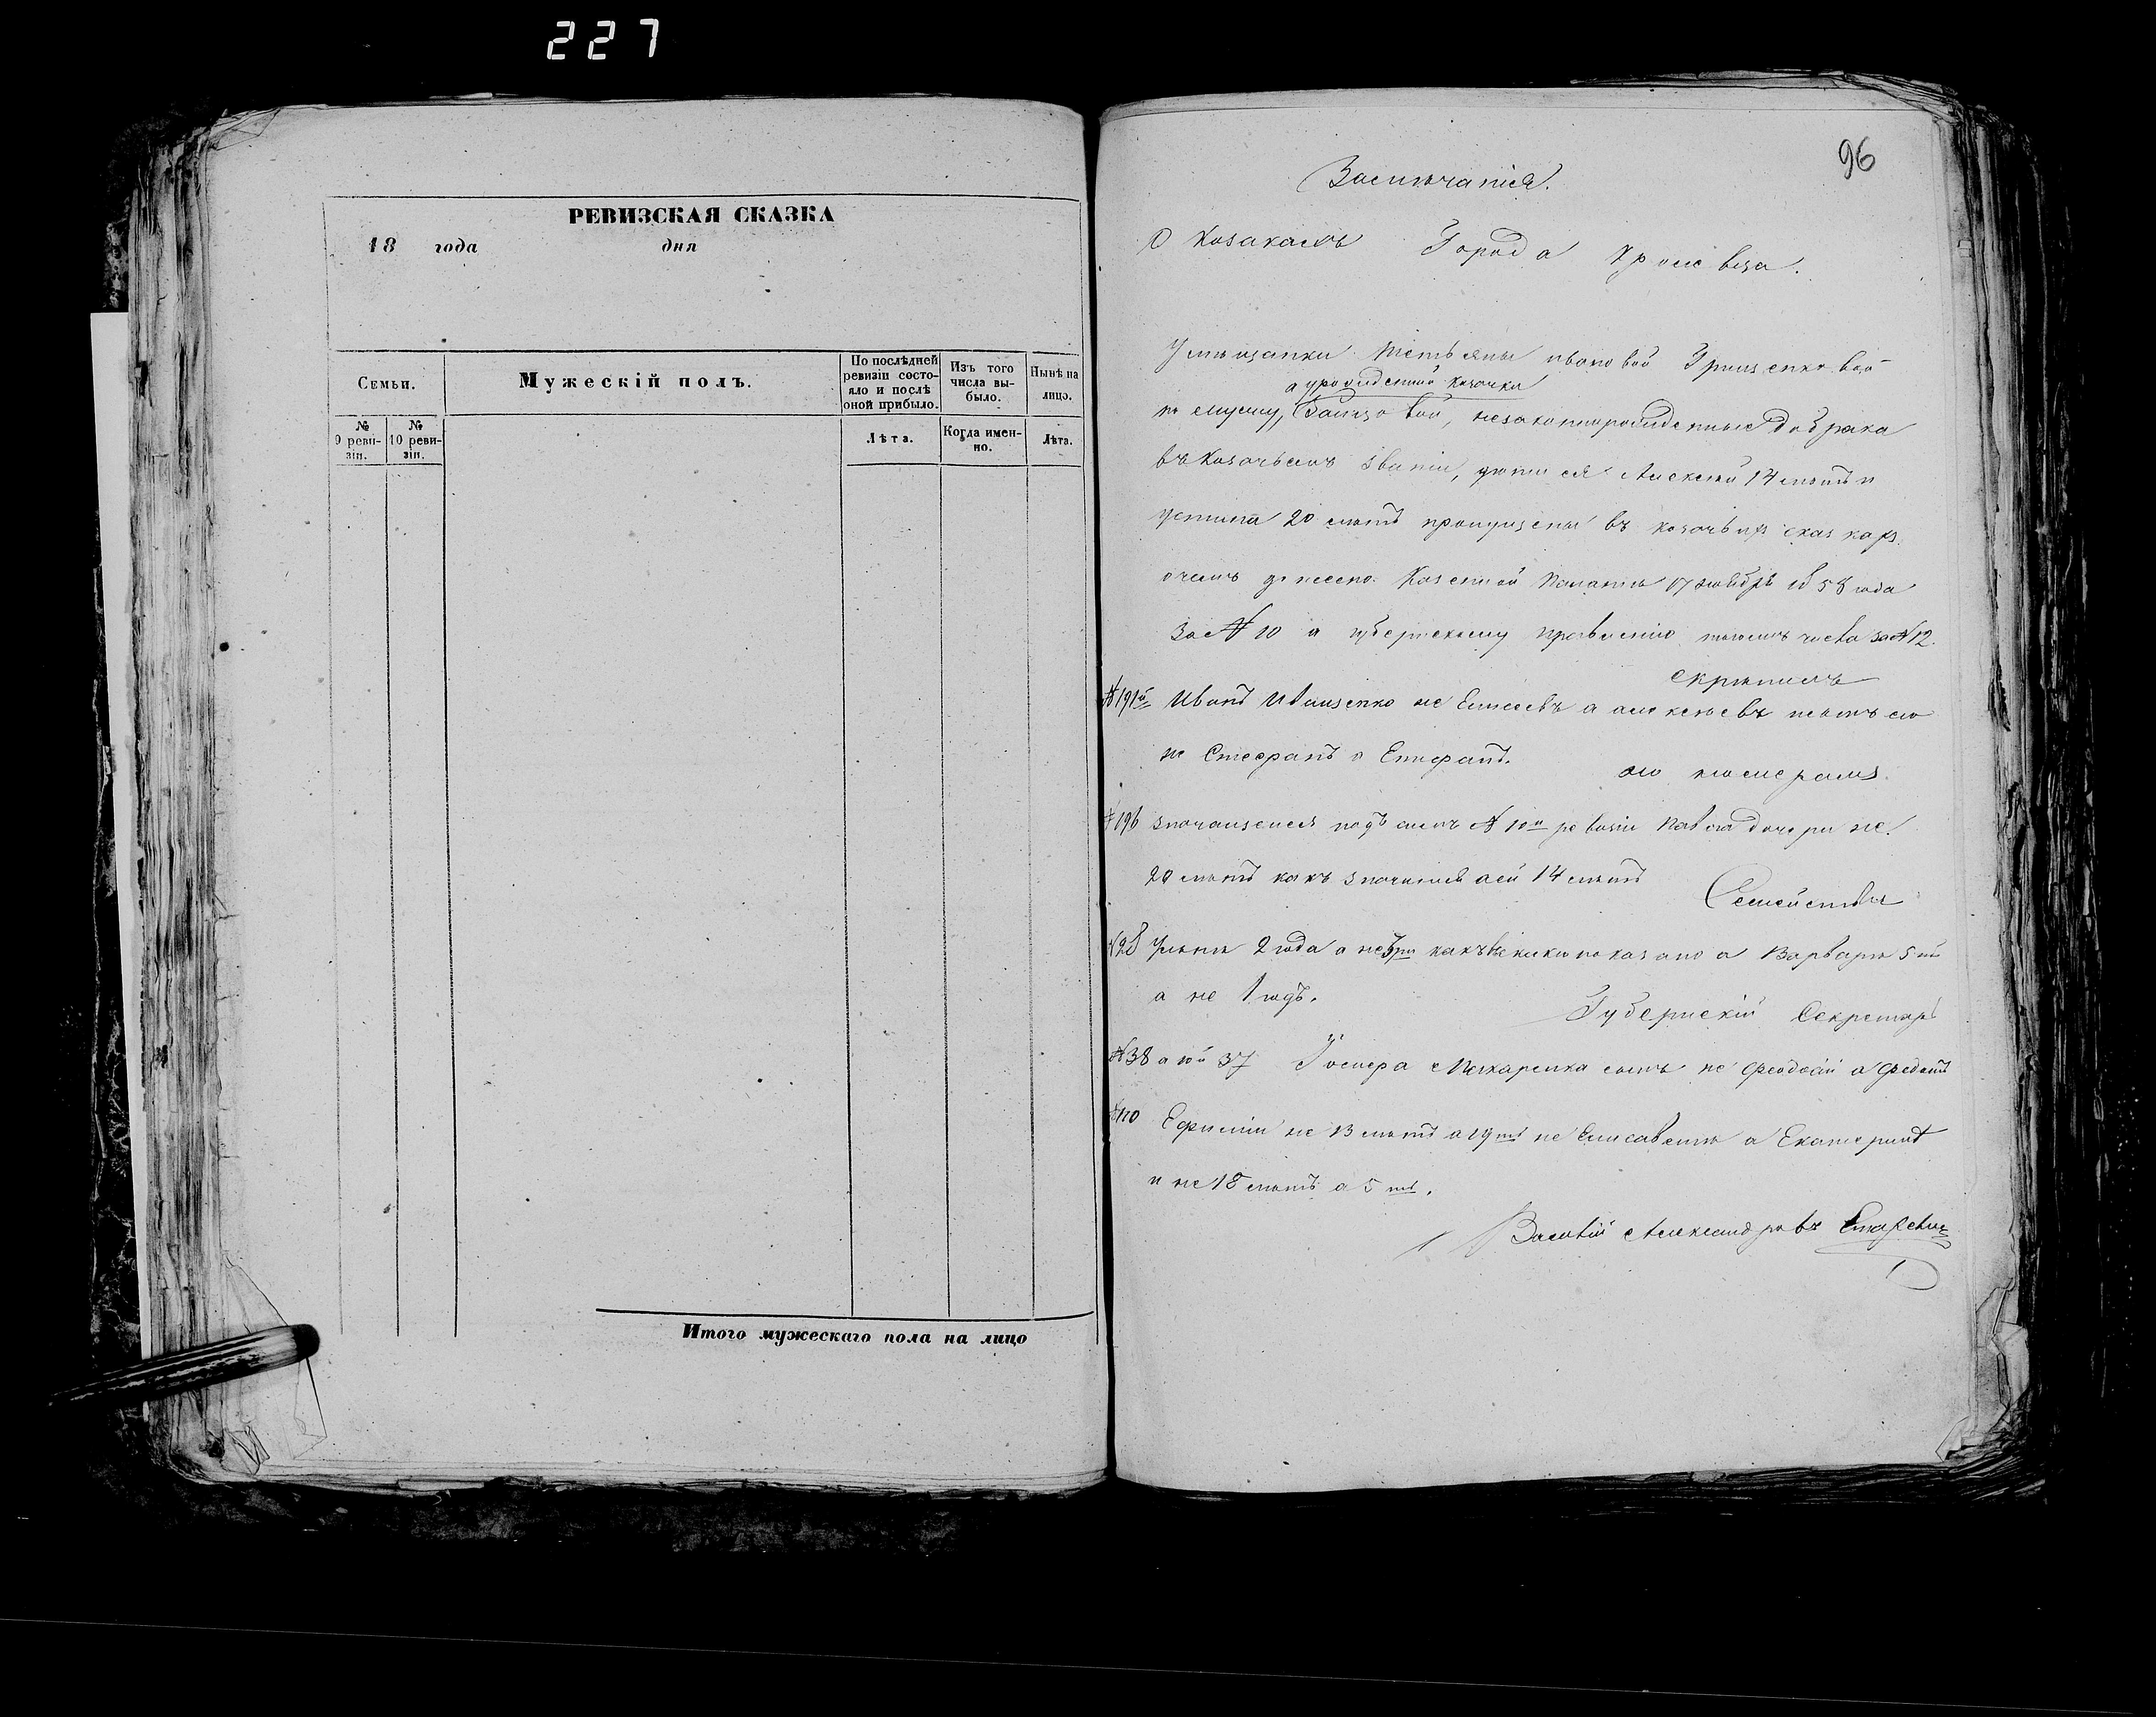 227
РЕВИЗСКАЯ СКАЗКА
18 года дня
Семьи.
Мужескій полъ.
По послѣдней ревизіи состояло и послѣ оной прибыло.
Изъ того числа выбыло.
Нынѣ на лицо.
№ 9 ревизіи.
№ 10 ревизіи.
Лѣта.
Когда именно.
Лѣта.
Итого мужескаго пола на лицо
96
Замѣчанія.
О Козакахъ Города Кролевца.
У мѣщанки Тетьяны Ивановой Грищенковой
а урожденной козачки
по мужу, Зайцовой, незаконнорожденные до брака
въ козачьемъ званіи, дѣти ея Алексѣй 14 лѣтъ и
Устина 20 лѣтъ пропущены въ козачьихъ сказкахъ
о чемъ донесено Казенной Палатѣ 17 Ноября 1858 года
за № 10 и Губернскому правленію того числа за № 12.
скрѣпилъ
№ 191й Иванъ Иващенко не Елисеевъ а Алексѣевъ
не Стефанъ а Епифанъ.
по номерамъ
№ 196 значащейся подъ симъ № 10й ревизіи Павла дочери не
20 лѣтъ какъ значится а ей 14 лѣтъ
Семейства
№ 28 2 года а не три показано а Варвары 5 тъ
а не 1 годъ.
Губернскій Секретарь
№ 38 а 10й 37 сынъ не Феодосій а Федотъ
№ 110 Ефиміи не 13 лѣтъ а 19ть не Елисаветы а Екатерина
и не 18 лѣтъ а 5 ть.
Василій Александровъ